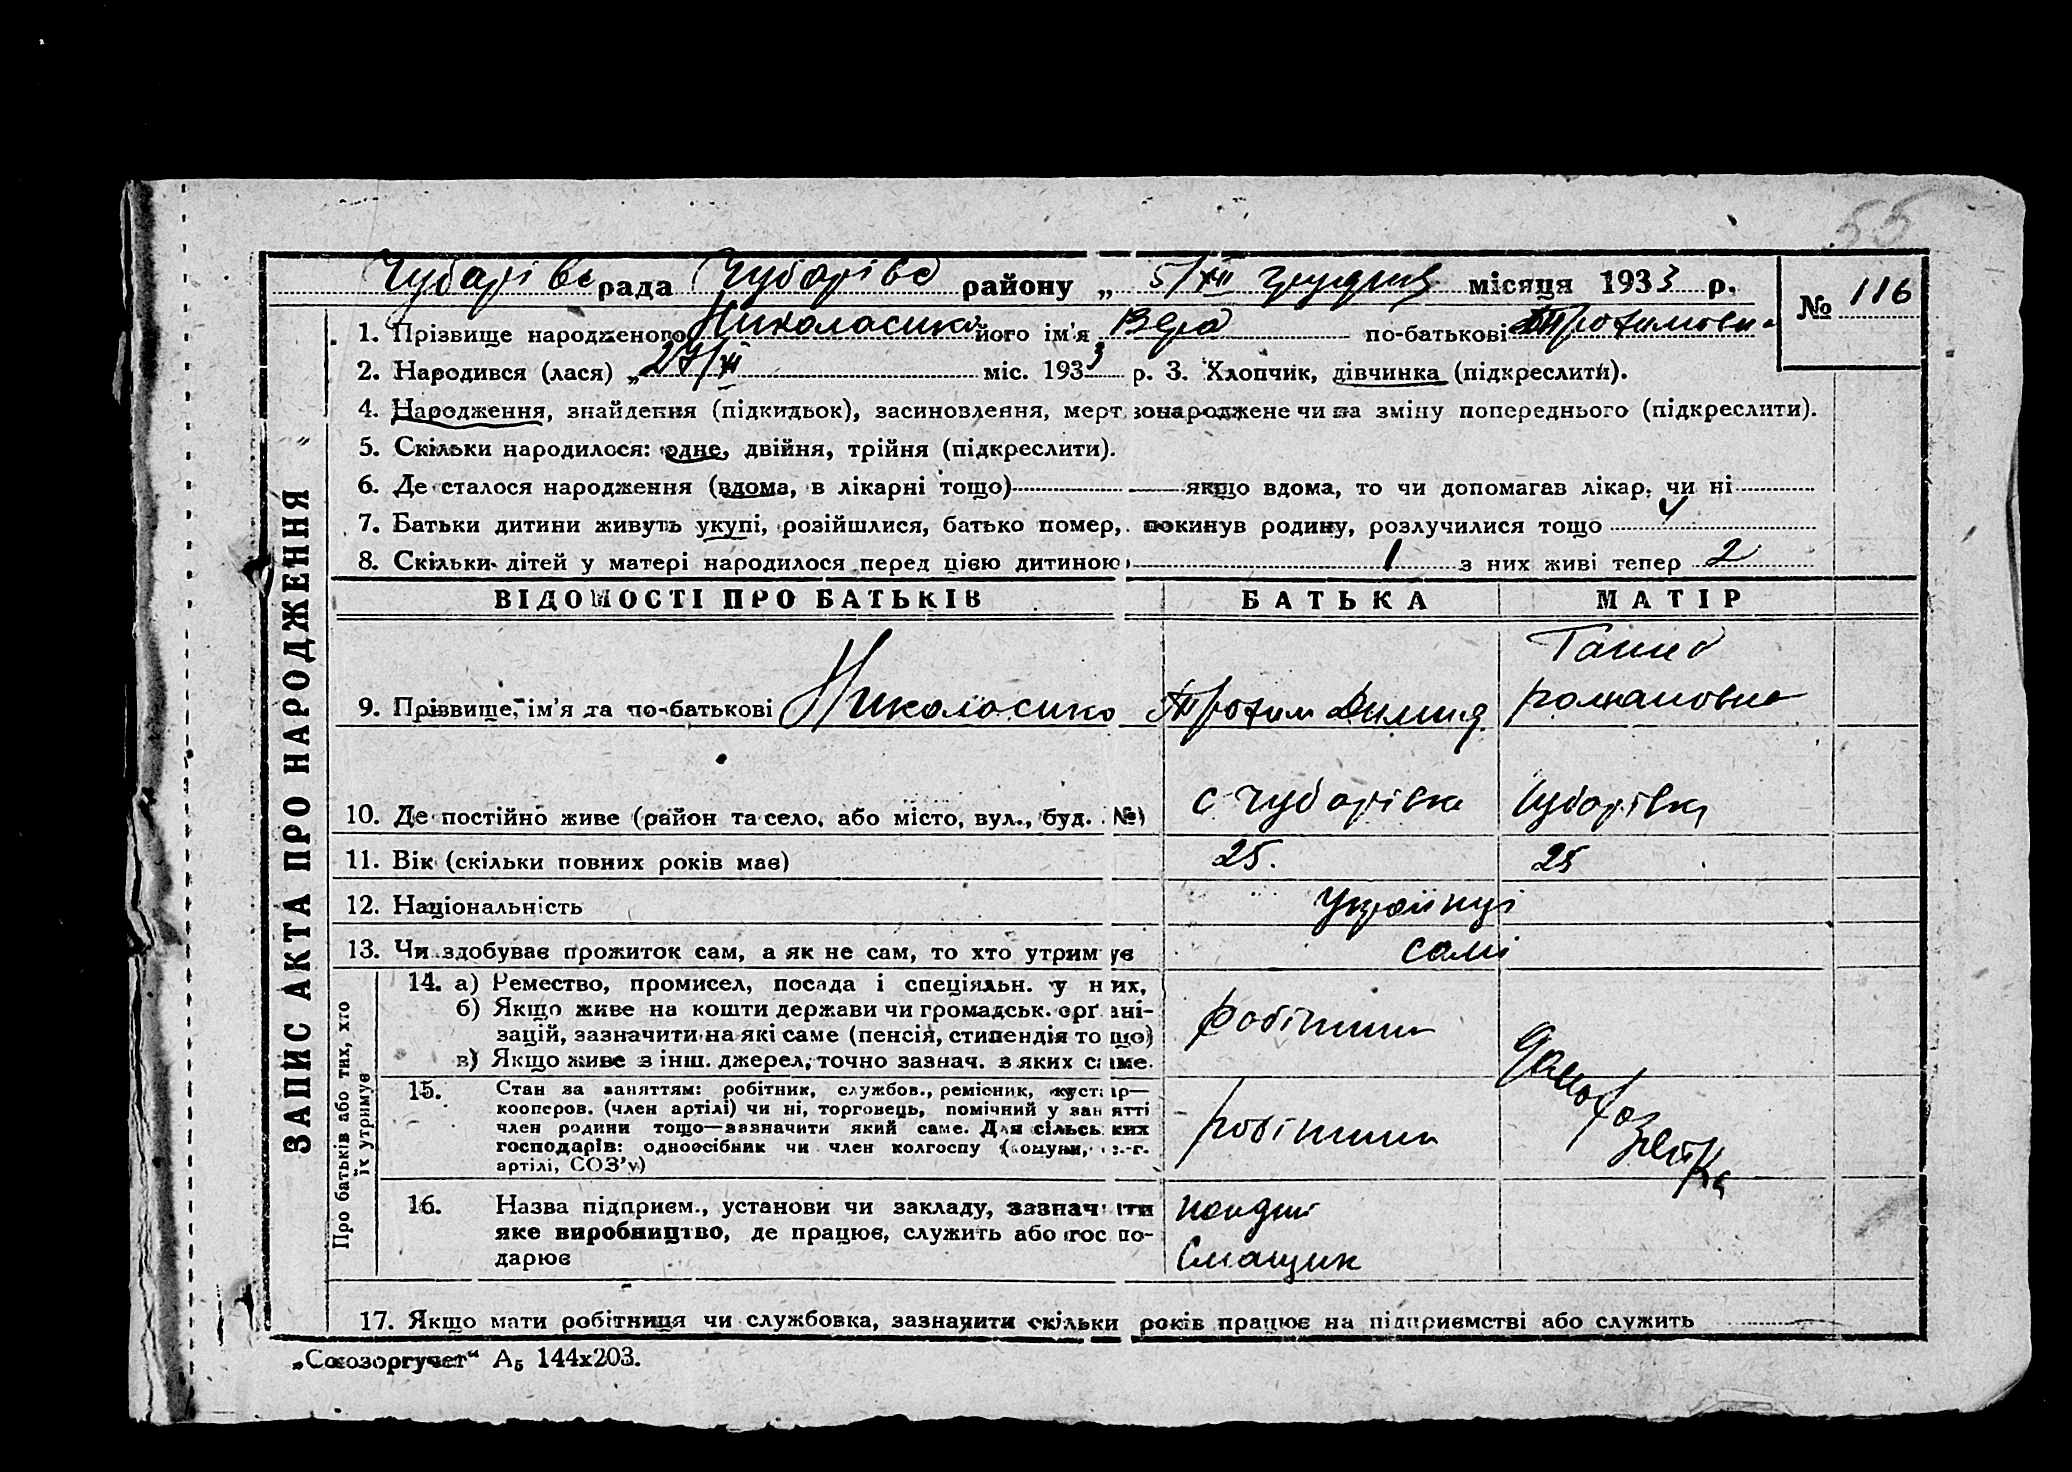 55
Чубарівс рада Чубарівс району „ 5/XII грудня місяця 1933 р.
№ 116
1. Прізвище народженого Николаєнко його ім'я Вера по-батькові Трохимовна
2. Народився (лася) „27/XI міс. 1933 р. 3. Хлопчик, дівчинка (підкреслити).
4. Народження, знайдення (підкидьок), засиновлення, мертвонароджене чи на зміну попереднього (підкреслити).
5. Скільки народилося: одне, двійня, трійня (підкреслити).
6. Де сталося народження (вдома, в лікарні тощо) якщо вдома, то чи допомагав лікар, чи ні
7. Батьки дитини живуть укупі, розійшлися, батько помер, покинув родину, розлучилися тощо
8. Скільки дітей у матері народилося перед цією дитиною 1 з них живі тепер 2
ЗАПИС АКТА ПРО НАРОДЖЕННЯ
ВІДОМОСТІ ПРО БАТЬКІВ БАТЬКА МАТІР
9. Прізвище, ім'я та по-батькові Николаєнко Трохим Ганна романовна
10. Де постійно живе (район та село, або місто, вул., буд. №) с Чубарівка Чубарівка
11. Вік (скільки повних років має) 25. 25
12. Національність Українці
13. Чи здобуває прожиток сам, а як не сам, то хто утримує самі
Про батьків або тих, хто їх утримує
14. а) Ремество, промисел, посада і спеціяльн. у них, робітник
б) Якщо живе на кошти держави чи громадськ. організацій, зазначити на які саме (пенсія, стипендія тощо)
в) Якщо живе з інш. джерел, точно зазнач. з яких саме.
15. Стан за заняттям: робітник, службов., ремісник, кустар—
кооперов. (член артілі) чи ні, торговець, помічний у занятті
член родини тощо—зазначити який саме. Для сільських
господарів: одноосібник чи член колгоспу (комуни, с.-г.
артілі, СОЗ'у)
робітник
Домохозяйка
16. Назва підприєм., установи чи закладу, зазначити
яке виробництво, де працює, служить або господарює
Смащик
17. Якщо мати робітниця чи службовка, зазначити скільки років працює на підприємстві або служить
„Союзоргучет“ А₅ 144х203.